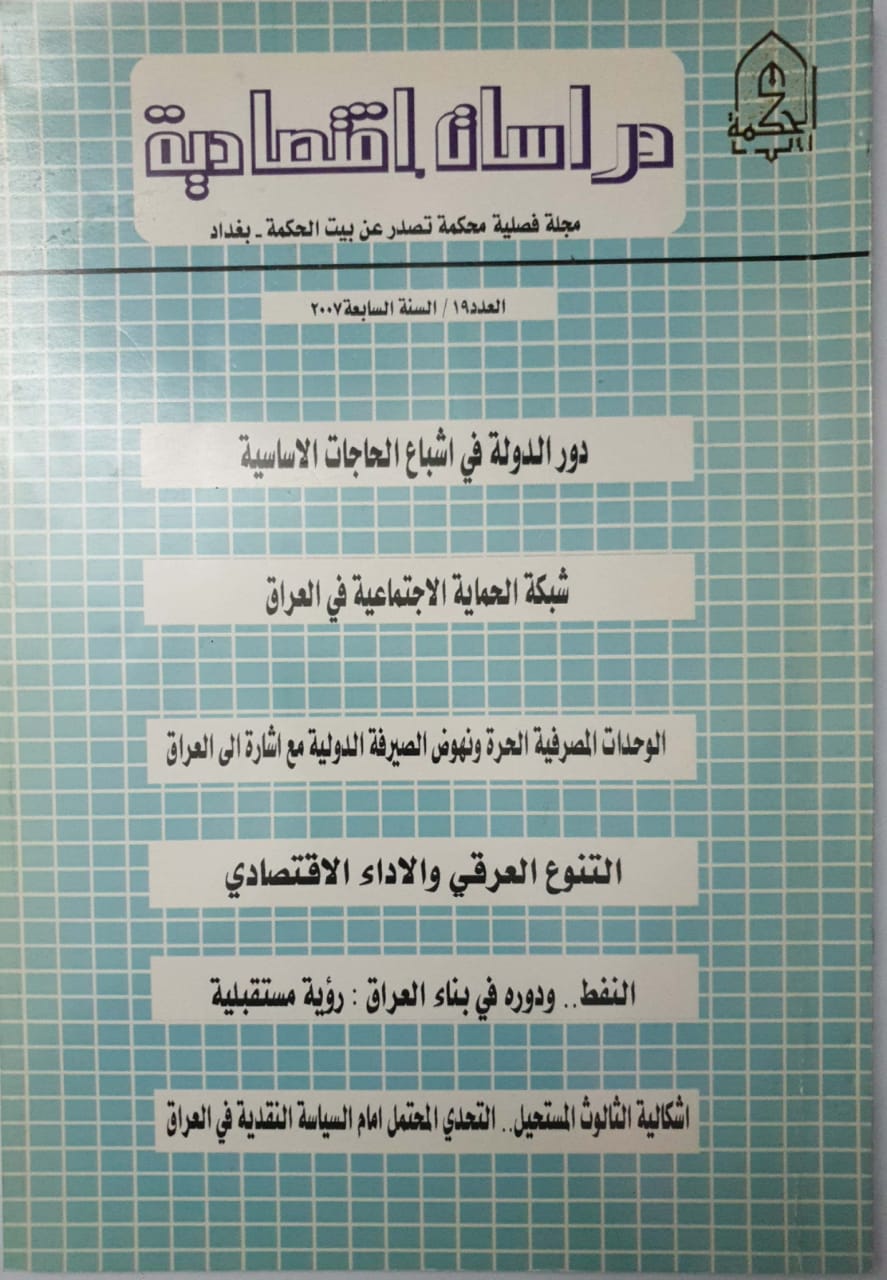 دراسات إقتصادية
بيت الحكمة
مجلة فصلية محكمة تصدر عن بيت الحكمة ـ بغداد
العدد١٩ / السنة السابعة ٢٠٠٧
دور الدولة في اشباع الحاجات الاساسية
شبكة الحماية الاجتماعية في العراق
الوحدات المصرفية الحرة ونهوض الصيرفة الدولية مع اشارة الى العراق
التنوع العرقي والاداء الاقتصادي
النفط.. ودوره في بناء العراق : رؤية مستقبلية
اشكالية الثالوث المستحيل.. التحدي المحتمل امام السياسة النقدية في العراق